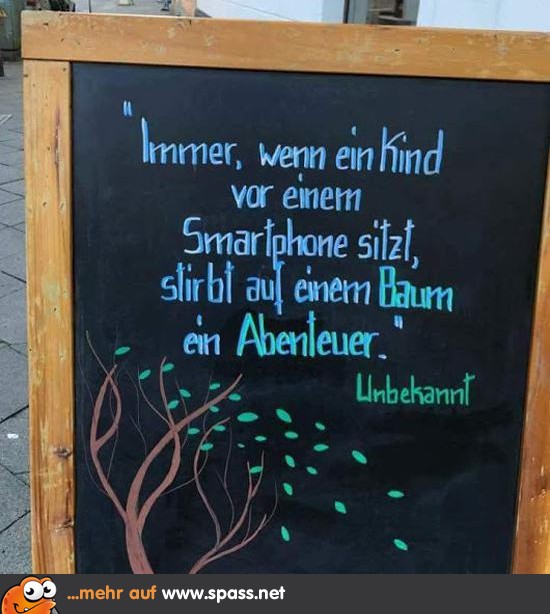 "Immer, wenn ein Kind
vor einem
Smartphone sitzt,
stirbt auf einem Baum
ein Abenteuer."
Unbekannt
...mehr auf www.spass.net